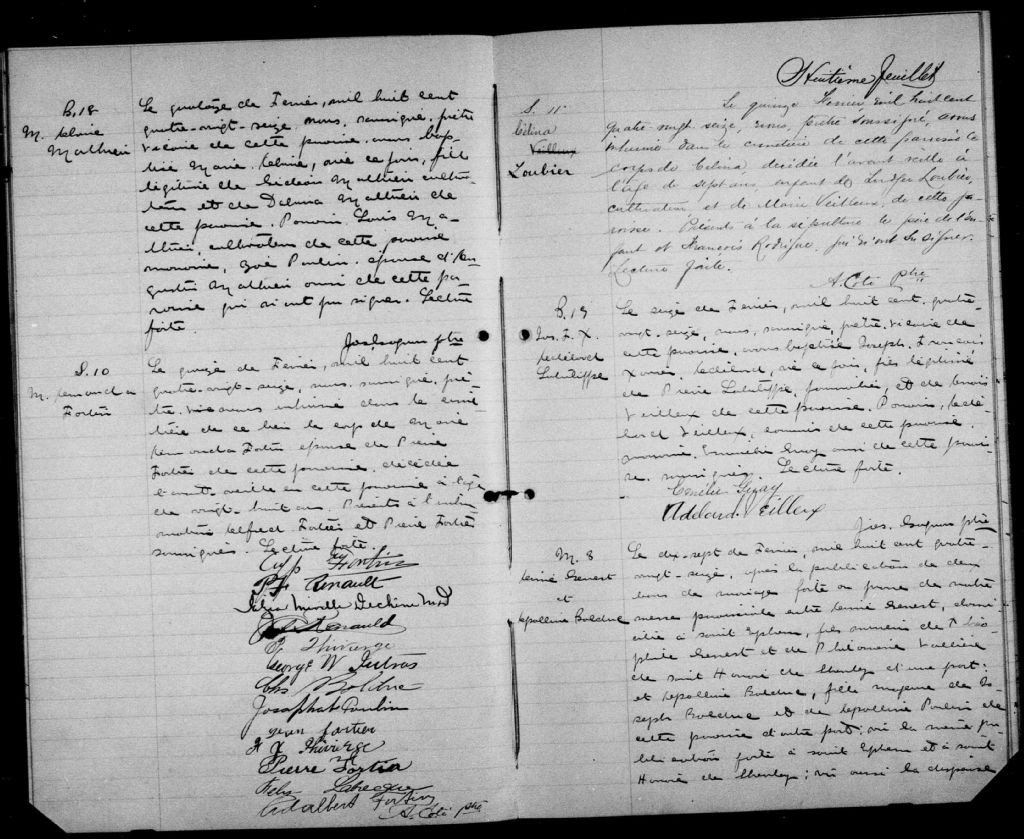 B. 18
M. Celanire
Mathieu
Le quatorze de Février, mil huit cent
quatre-vingt-seize, nous, soussigné, prêtre
vicaire de cette paroisse, avons bap-
tisé Marie, née ce jour, fille
légitime de Gédéon Mathieu cultiva-
teur et de Mathieu de
cette paroisse. Parrain, Louis Ma-
thieu, cultivateur de cette paroisse
marraine, Zoé Poulin, épouse d'Au-
gustin Mathieu aussi de cette pa-
roisse qui n'ont pu signer. Lecture
faite.
ptre
S. 10
Fortin
Le quinze de Février, mil huit cent
quatre-vingt-seize, nous, soussigné, prê-
tre, vicaire avons inhumé dans le cime-
tière de ce lieu le corps de Marie
Fortin épouse de Pierre
Fortin de cette paroisse, décédée
l'avant-veille en cette paroisse à l'âge
de vingt-huit ans. Présents à l'inhu-
mation Fortin et Pierre Fortin
soussignés. Lecture faite.
Fortin
P. F. Renault
Miville Dechêne
Renauld
Thivierge
George W Jutras
Chs Bolduc
Josaphat Poulin
Jean Fortier
F X Thivierge
Pierre Fortin
Adalbert Fortin
A. Coté ptre
Huitième feuillet
S. 11
Célina
Veilleux
Loubier
Le quinze Février mil huit cent
quatre-vingt seize, nous, prêtre soussigné, avons
inhumé dans le cimetière de cette paroisse le
corps de Célina, décédée l'avant veille à
l'âge de sept ans, enfant de Loubier,
cultivateur et de Marie Veilleux, de cette pa-
roisse. Présents à la sépulture le père de l'en-
fant et François Rodrigue, qui n'ont su signer.
Lecture faite.
A. Coté Ptre
B. 19
Jos. F. X.
Adélard
Labubbe
Le seize de Février, mil huit cent, quatre-
vingt-seize, nous, soussigné, prêtre, vicaire de
cette paroisse, avons baptisé Joseph, François
Xavier, Adélard, né ce jour, fils légitime
de Pierre journalier, et de
Veilleux de cette paroisse. Parrain, Adé-
lard Veilleux, commis de cette paroisse.
marraine, aussi de cette parois-
se, soussignés. Lecture faite.
Adélard Veilleux
Jos. ptre
M. 8
Genest
et
Apolline Bolduc
Le dix-sept de Février, mil huit cent quatre-
vingt-seize, après la publication de deux
bans de mariage faite au prône de notre
messe paroissiale entre Genest, domi-
cilié à saint Ephrem, fils mineur de Théo-
phile Genest et de Philomène Vallière
de saint Honoré de Shenley d'une part;
et Apolline Bolduc, fille majeure de Jo-
seph Bolduc et de Apolline Poulin de
cette paroisse d'autre part; vu la même pu-
blication faite à saint Ephrem et à saint
Honoré de Shenley; vu aussi la dispense